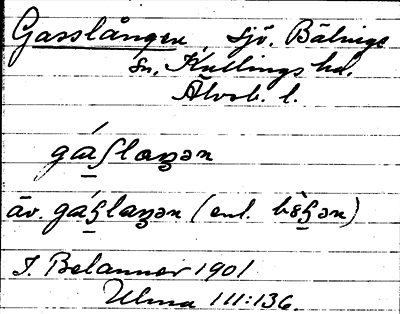 Gasslången, sjö. Bälinge
sn, Kullings hd.
Älvsb. l.
gáʂlaŋən
äv. gáʂlaŋən (enl.
I. Belanner 1901
Ulma 111:136.